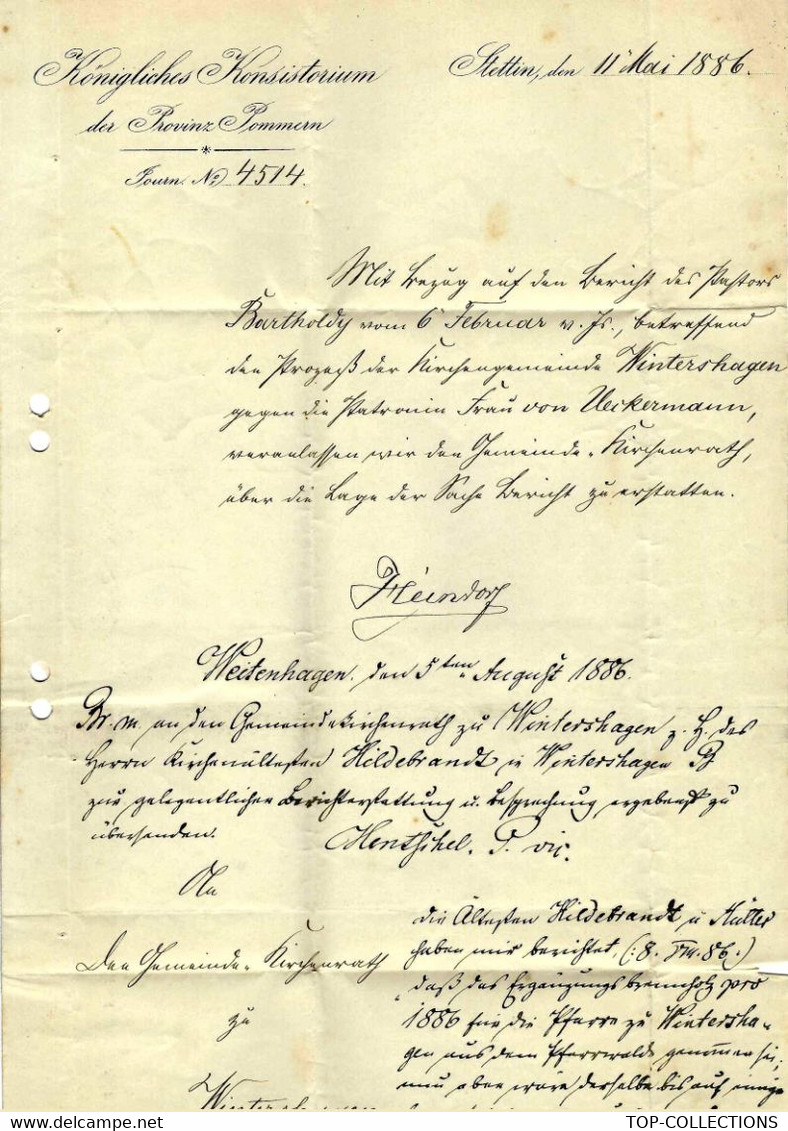 Königliches Konsistorium
der Provinz Pommern
Journ. No. 4514.
Stettin, den 11 Mai 1886.
Mit Bezug auf den Bericht des Pastors
Bartholdy vom 6 Februar v. Js., betreffend
den Prozeß der Kirchengemeinde Wintershagen
gegen die Patronin Frau von Ueckermann,
veranlassen wir den Gemeinde-Kirchenrath,
über die Lage der Sache Bericht zu erstatten.
Heindorf
Weitenhagen, den 5ten August 1886.
Br. m. an den Gemeindekirchenrath zu Wintershagen z. H. des
Herrn Kirchenältesten Hildebrandt in Wintershagen
zur gelegentlichen Berichterstattung u. Besprechung ergebenst zu
übersenden.
Hentschel. P. vic.
An
Den Gemeinde-Kirchenrath
zu
Wintershagen
die Ältesten Hildebrandt u Müller
haben mir berichtet, (:8. VIII. 86.:)
"daß das Ergänzungsbrennholz pro
1886 für die Pfarre zu Wintersha-
gen aus dem Pfarrwalde genommen sei;
nun aber wäre derselbe bis auf einige
TOP-COLLECTIONS